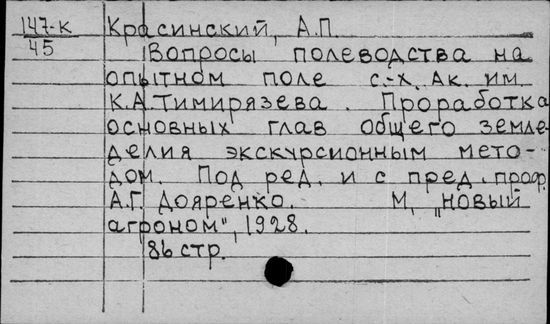 147-к Красинский, А.П.
45 Вопросы полеводства на
опытном поле с.-х. Ак. им.
К.А.Тимирязева. Проработка
основных глав общего земле-
делия экскурсионным мето-
дом. Под ред. и с пред. проф.
А.Г. Дояренко. М, „новый
агроном", 1928.
86 стр.